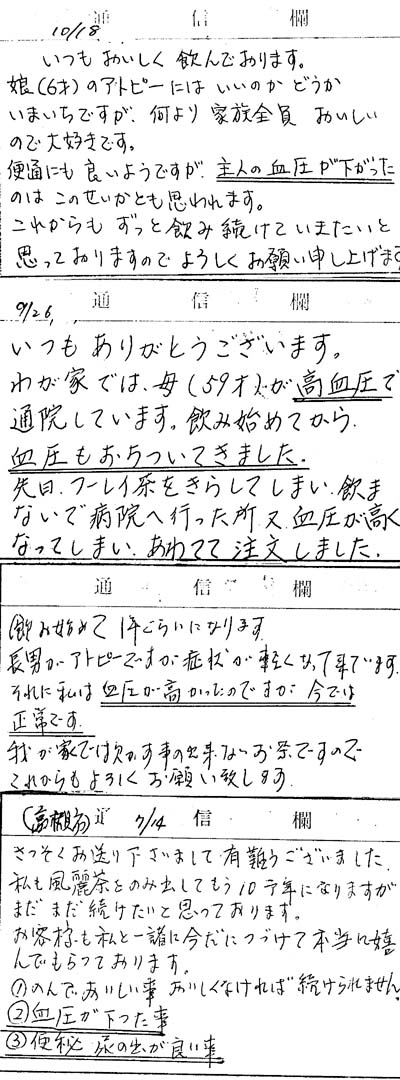 通信欄
10/18
いつもおいしく飲んでおります。
娘(6才)のアトピーにはいいのかどうか
いまいちですが、何より家族全員おいしい
ので大好きです。
便通にも良いようですが、主人の血圧が下がった
のはこのせいかとも思われます。
これからもずっと飲み続けていきたいと
思っておりますのでよろしくお願い申し上げます
9/26 通信欄
いつもありがとうございます。
わが家では、母(59才)が高血圧で
通院しています。飲み始めてから、
血圧もおちついてきました。
先日、フーレイ茶をきらしてしまい、飲ま
ないで病院へ行った所、又、血圧が高く
なってしまい、あわてて注文しました。
通信欄
飲み始めて1年ぐらいになります。
長男がアトピーですが症状が軽くなって来ています。
それに私は血圧が高かったのですが今では
正常です。
我が家では欠かす事の出来ないお茶ですので
これからもよろしくお願い致します。
通信欄
7/14
さっそくお送り下さいまして有難うございました。
私も風麗茶をのみ出してもう10年になりますが
まだまだ続けたいと思っております。
お客様も私と一緒に今だにつづけて本当に嬉
んでもらっております。
①のんで、おいしい事 おいしくなければ続けられません。
②血圧が下った事
③便秘 尿の出が良い事